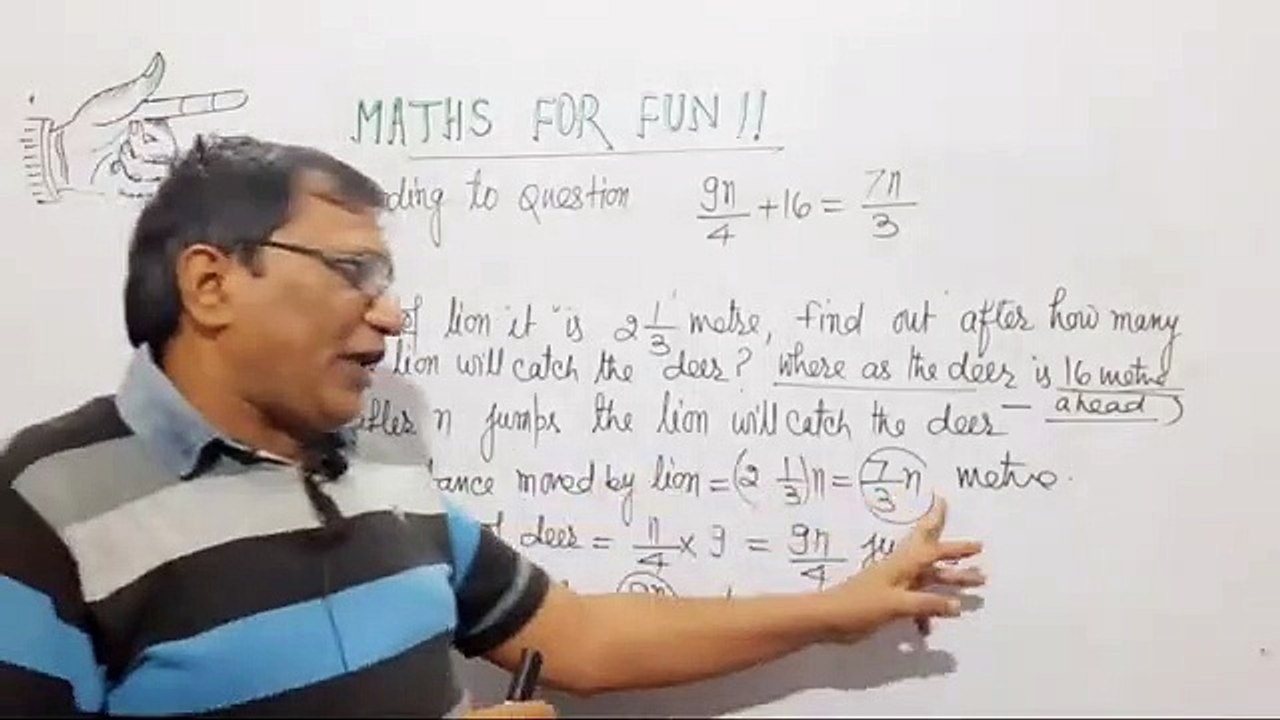 MATHS FOR FUN !!
ding to Question 9n/4 + 16 = 7n/3
of lion it is 2 1/3 metre, find out after how many
lion will catch the deer? where as the deer is 16 metre
ahead)
after n jumps the lion will catch the deer —
tance moved by lion = (2 1/3)n = 7/3 n metre.
of deer = n/4 × 9 = 9n/4 ju
9n